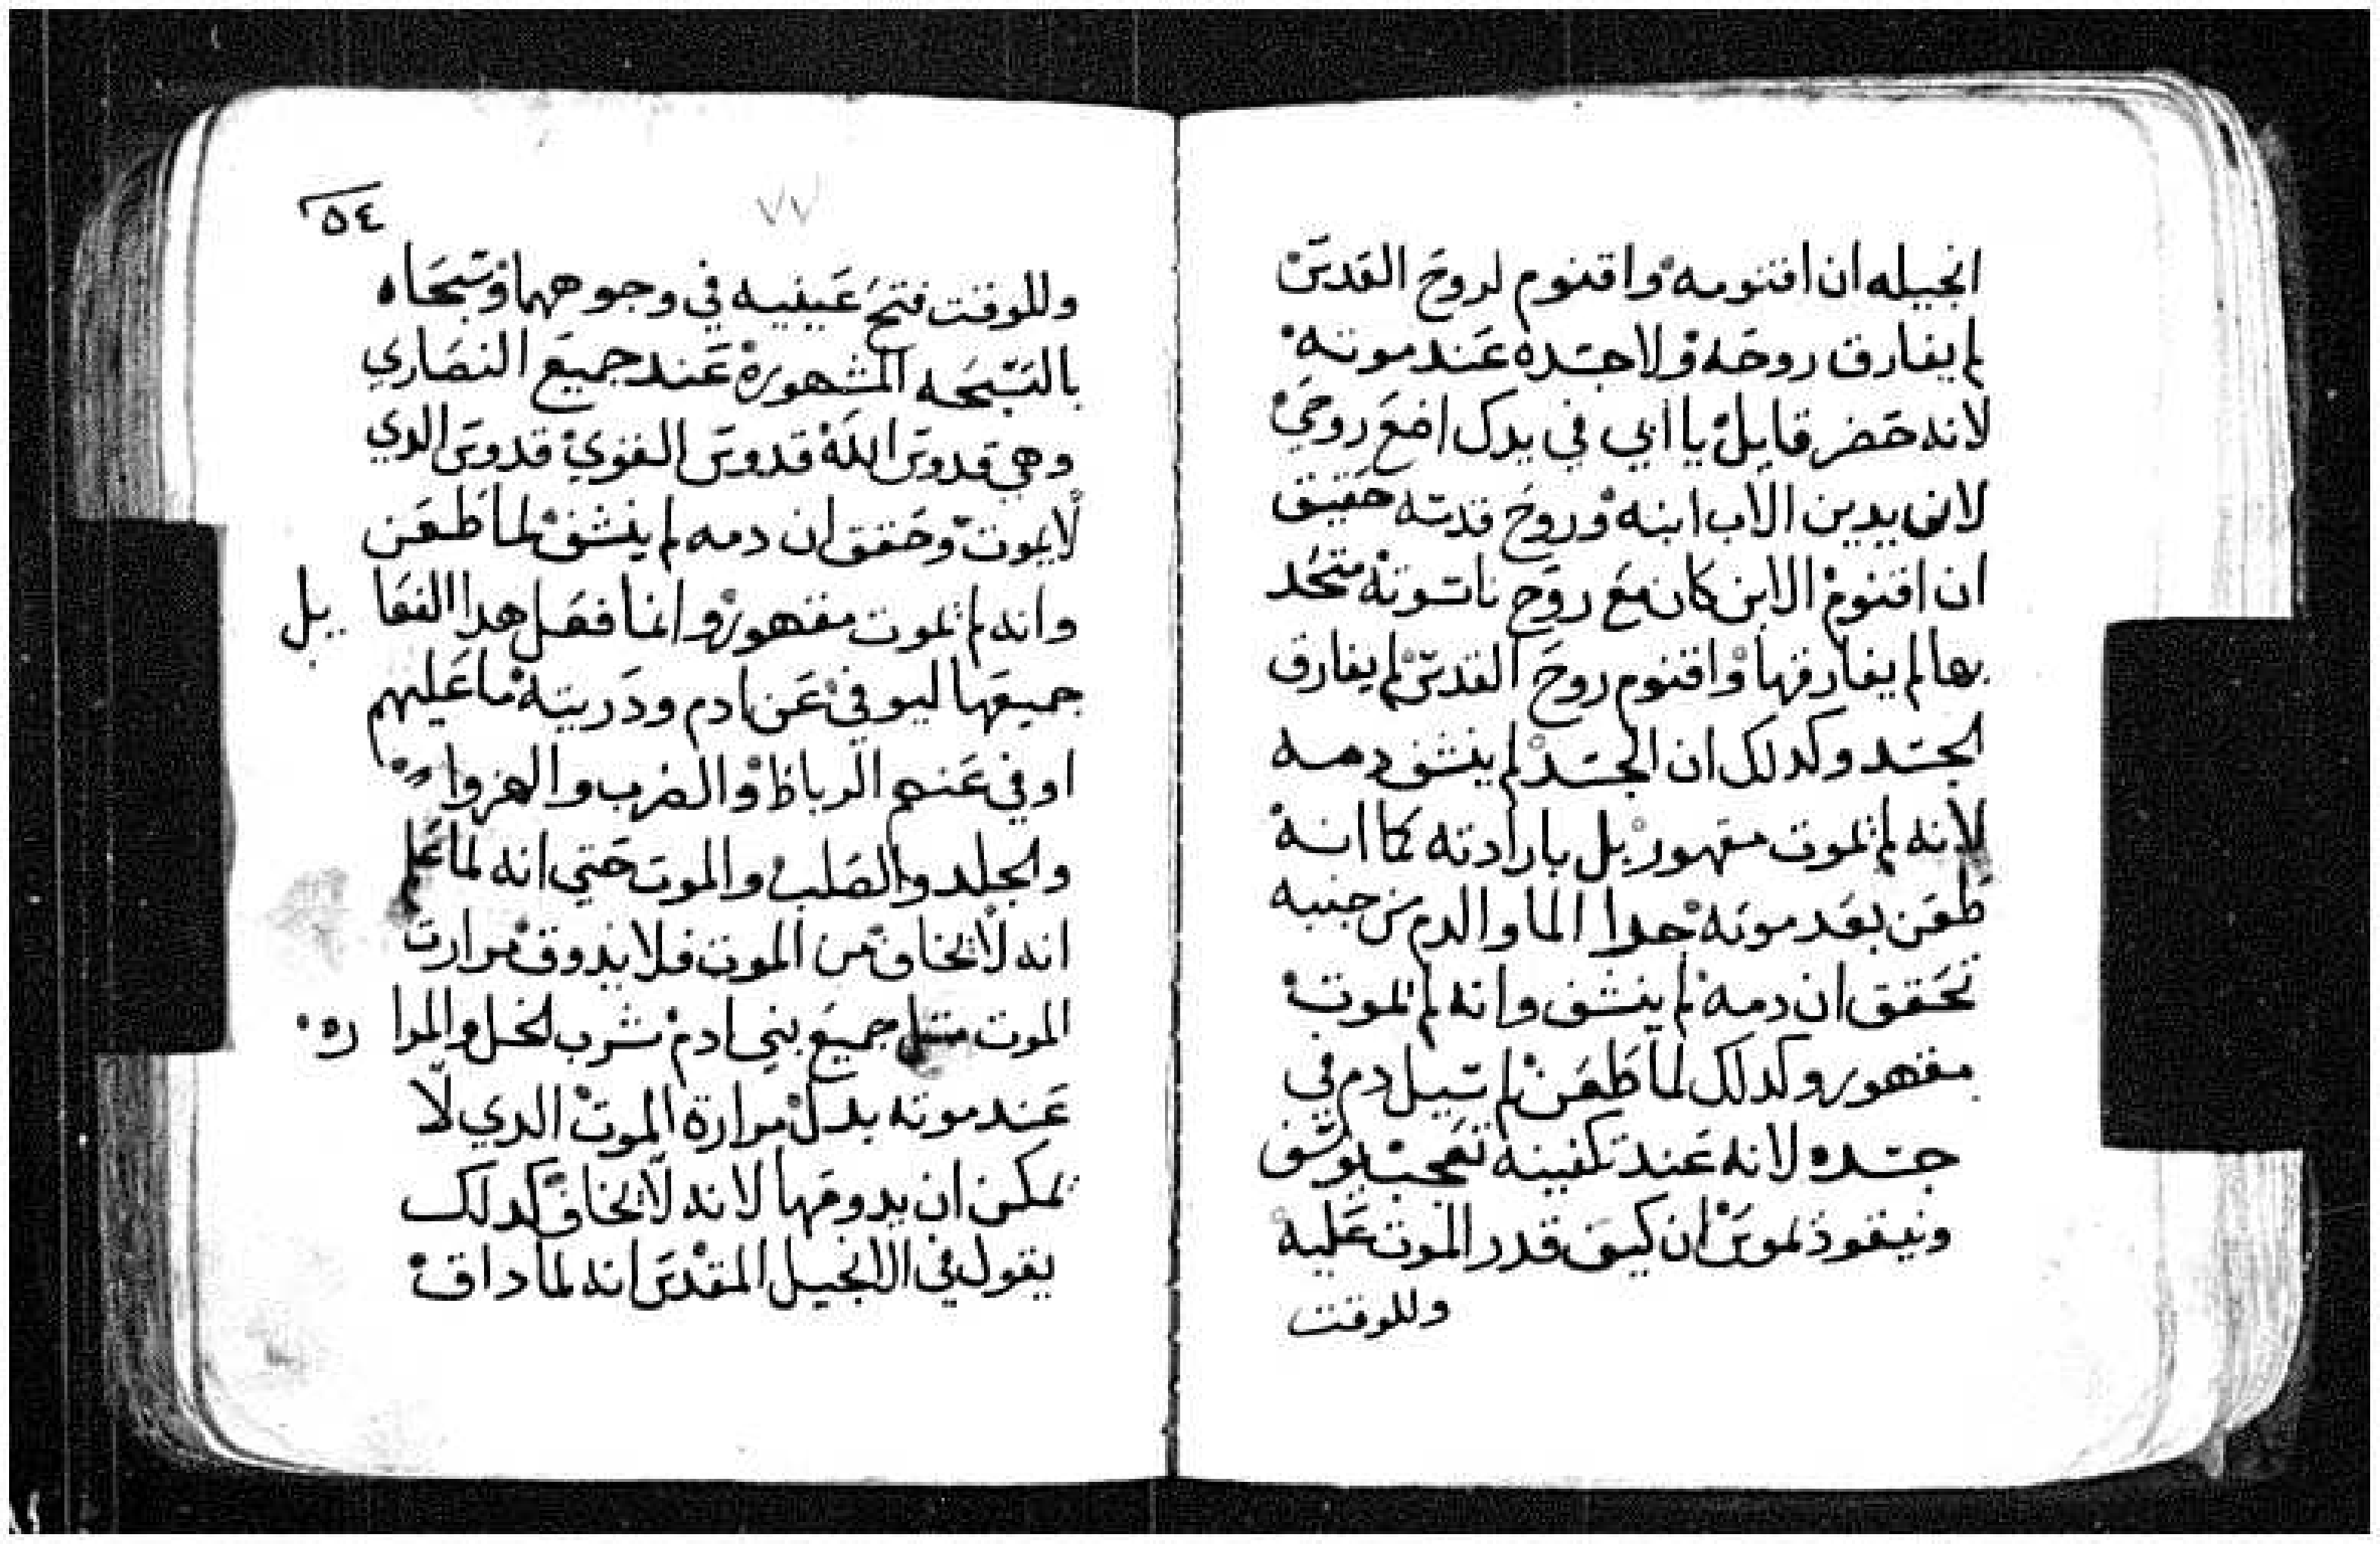 انجيله ان اقنومه واقنوم لروح القدس
لم يفارق روحه ولا جسده عند موته
لانه حضر قايل يا ابي في يدك اضع روحي
لان يدين الاب ابنه وروح قدسه حقيق
ان اقنوم الابن كان مع روح ناسوته متحد
بها لم يفارقها واقنوم روح القدس لم يفارق
الجسد وكدلك ان الجسد لم ينشف دمه
لانه لم يموت مقهور بل بارادته كما انه
طعن بعد موته جدا الما والدم من جنبه
تحقق ان دمه لم ينشف وانه لم يموت
مقهور وكدلك لما طعن لم تسيل دم في
جسده لانه عند تكفينه تعجب يوسف
ونيقوديموس ان كيف قدر الموت عليه
وللوقت
٥٤
٧٧
وللوقت فتح عينيه في وجوههما وسبحاه
بالتسبحه المشهوره عند جميع النصاري
وهي قدوس الله قدوس القوي قدوس الدي
لا يموت وحقق ان دمه لم ينشف لما طعن
وانه لم يموت مقهور وانما فعل هدا الفعايل
جميعها ليوفي عن ادم ودريته ما عليهم
اوفي عنهم الرباط والضرب والهزوا
والجلد والصلب والموت حتي انه لما علم
انه لا يخاف من الموت فلا يدوق مرارت
الموت متل جميع بني ادم شرب الخل والمراره
عند موته بدل مرارة الموت الدي لا
يمكن ان يدوقها لانه لا يخاف كدلك
يقول في الانجيل المقدس انه لما داق